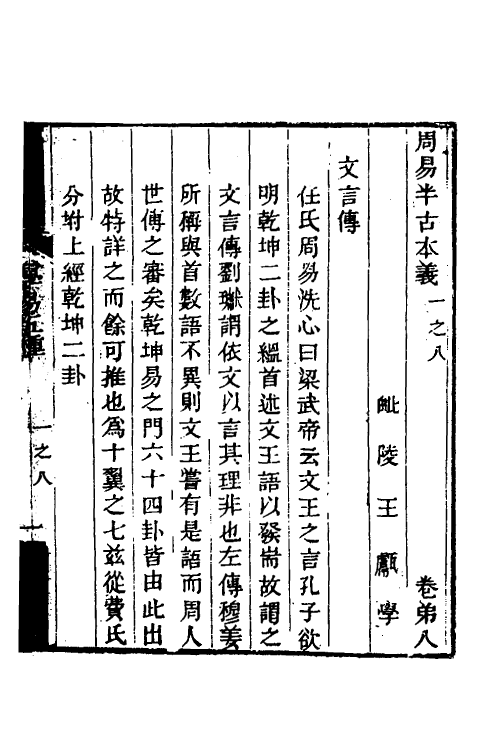 周易半古本義 一之八 卷弟八
毗陵王 學
文言傳
任氏周易洗心曰梁武帝云文王之言孔子欲
明乾坤二卦之緼首述文王語以發耑故謂之
文言傳劉瓛謂依文以言其理非也左傳穆姜
所稱與首數語不異則文王嘗有是語而周人
世傳之審矣乾坤易之門六十四卦皆由此出
故特詳之而餘可推也爲十翼之七玆從費氏
分坿上經乾坤二卦
一之八